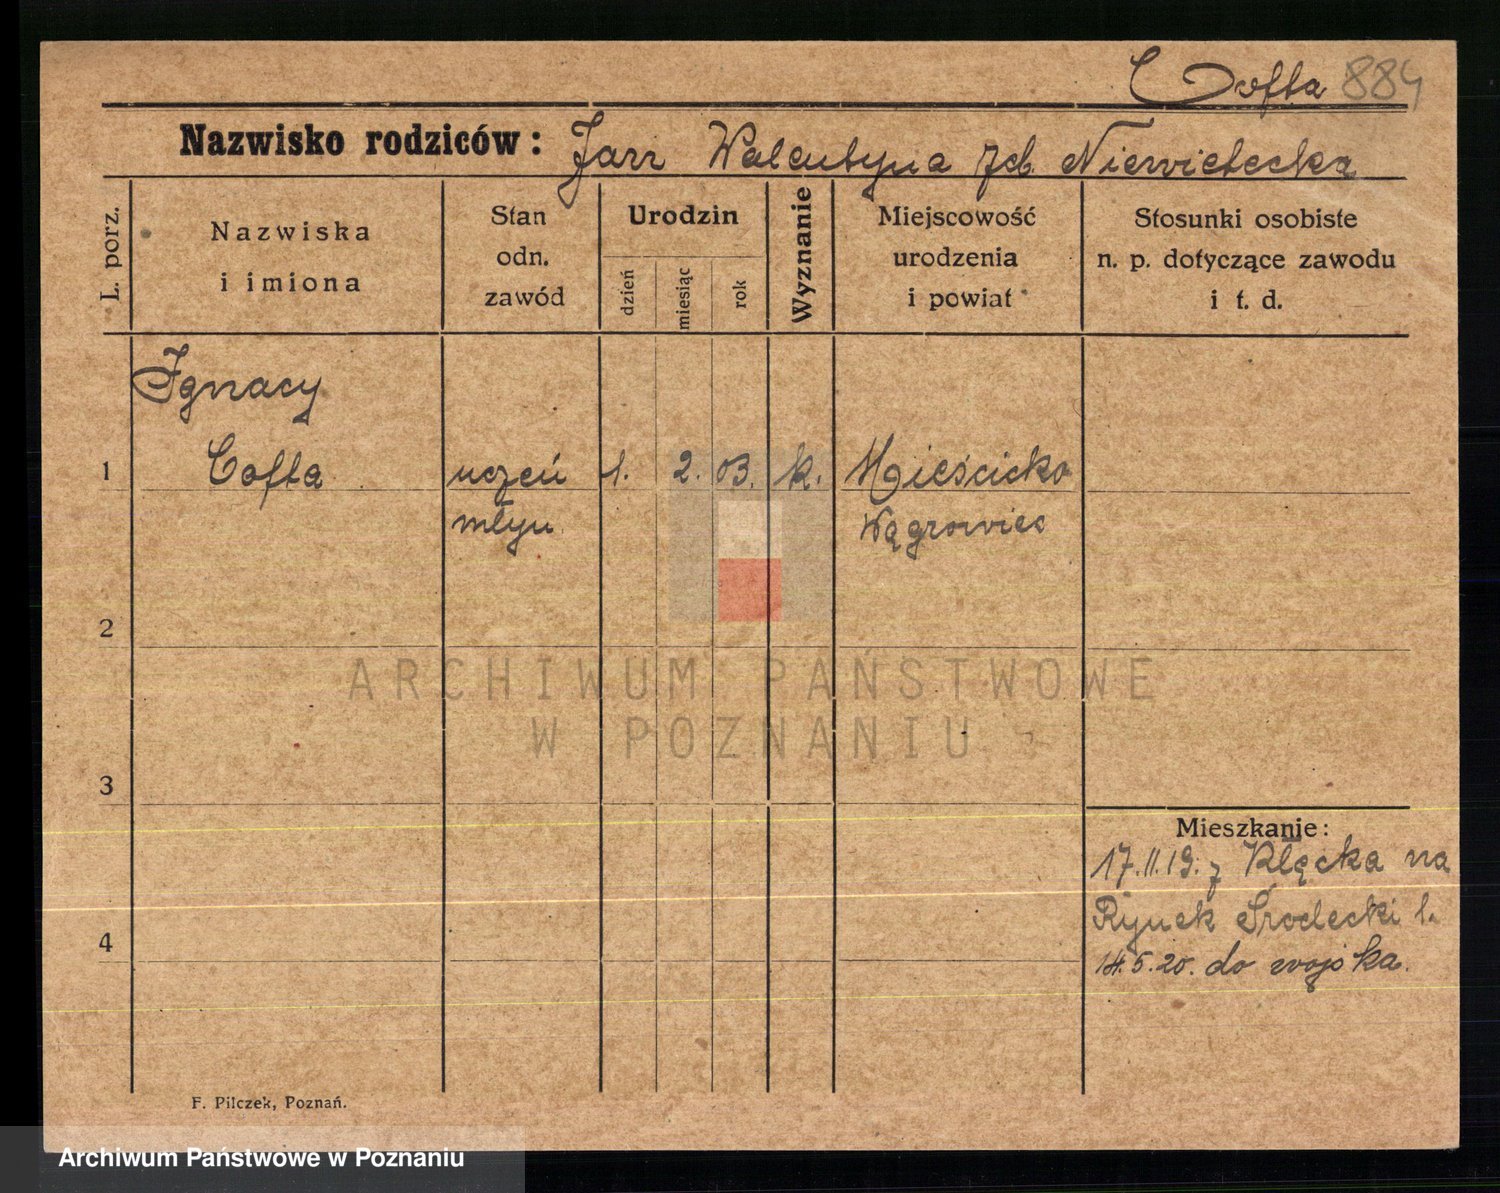 Cofta 884
Nazwisko rodziców: Jarr Walentyna zd. Niewietecka
L. porz.
Nazwiska
i imiona
Stan
odn.
zawód
Urodzin
dzień
miesiąc
rok
Wyznanie
Miejscowość
urodzenia
i powiat
Stosunki osobiste
n. p. dotyczące zawodu
i t. d.
Ignacy
1 Cofta uczeń 1. 2. 03. k. Mieścicko
młyn Wągrowiec
2
ARCHIWUM PAŃSTWOWE
W POZNANIU
3
Mieszkanie:
17.11.19. z Kłęcka na
Rynek Śródecki 1.
4
14.5.20. do wojska.
F. Pilczek, Poznań.
Archiwum Państwowe w Poznaniu